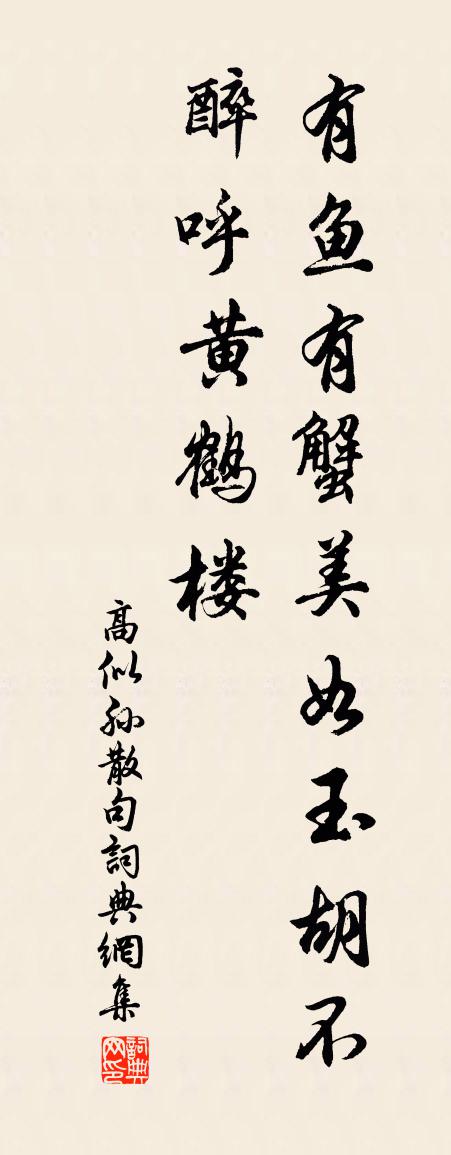 有鱼有蟹美如玉胡不
醉呼黄鹤楼
高似孙散句詞典網集
詞典网印